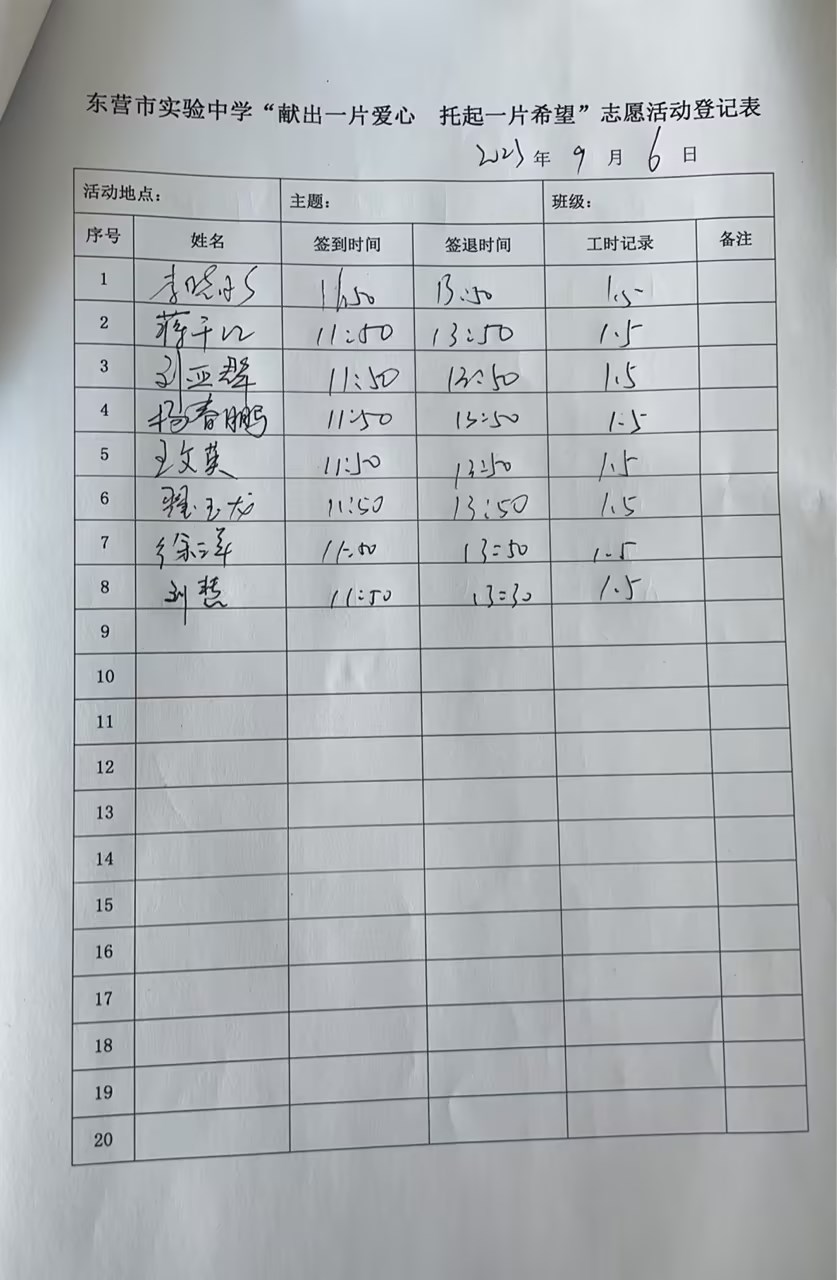 东营市实验中学“献出一片爱心 托起一片希望”志愿活动登记表
2023年 9 月 6 日
活动地点： 主题： 班级：
序号 姓名 签到时间 签退时间 工时记录 备注
1 11:50 13:50 1.5
2 11:50 13:50 1.5
3 刘亚群 11:50 13:50 1.5
4 杨春鹏 11:50 13:50 1.5
5 王文英 11:50 13:50 1.5
6 翟玉龙 11:50 13:50 1.5
7 11:50 13:50 1.5
8 刘慧 11:50 13:30 1.5
9
10
11
12
13
14
15
16
17
18
19
20